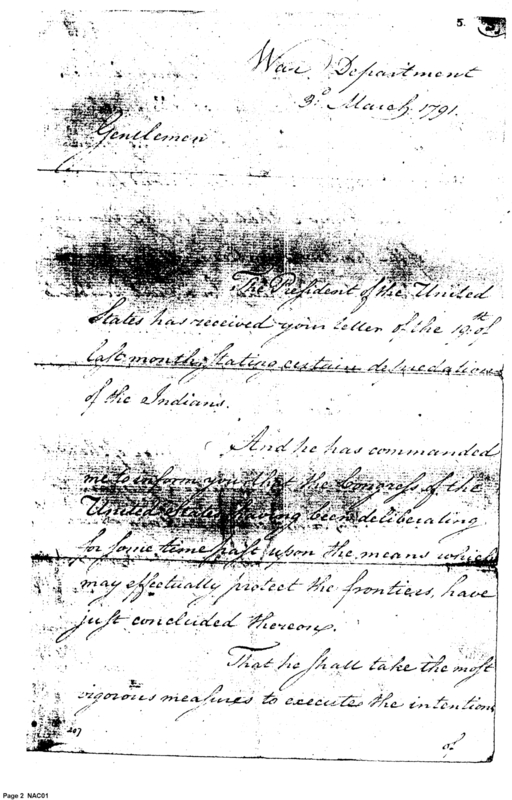 5.
War Department
3d March 1791.
Gentlemen
The President of the United
States has received your letter of the 19th of
last month, stating certain depredations
of the Indians.
And he has commanded
me to inform you that the Congress of the
United States having been deliberating
for some time past upon the means which
may effectually protect the frontiers, have
just concluded thereon.
That he shall take the most
vigorous measures to execute the intentions
207
of
Page 2 NAC01